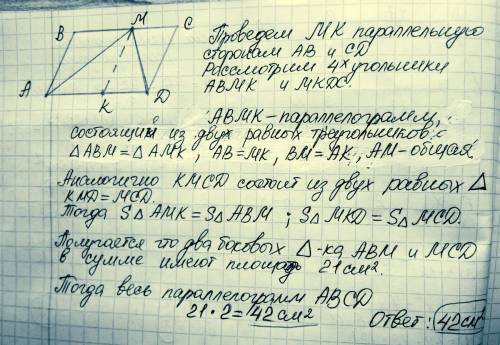 B M C
A K D
Проведем MK параллельную
сторонам AB и CD
Рассмотрим 4х угольники
ABMK и MKDC.
ABMK - параллелограмм,
состоящий из двух равных треугольников:
△ABM = △AMK, AB = MK, BM = AK, AM - общая
Аналогично KMCD состоит из двух равных △
KMD = MCD.
Тогда S△AMK = S△ABM ; S△MKD = S△MCD.
Получается что два боковых △-ка ABM и MCD
в сумме имеют площадь 21 см².
Тогда весь параллелограмм ABCD
21 · 2 = 42 см²
Ответ: 42 см²